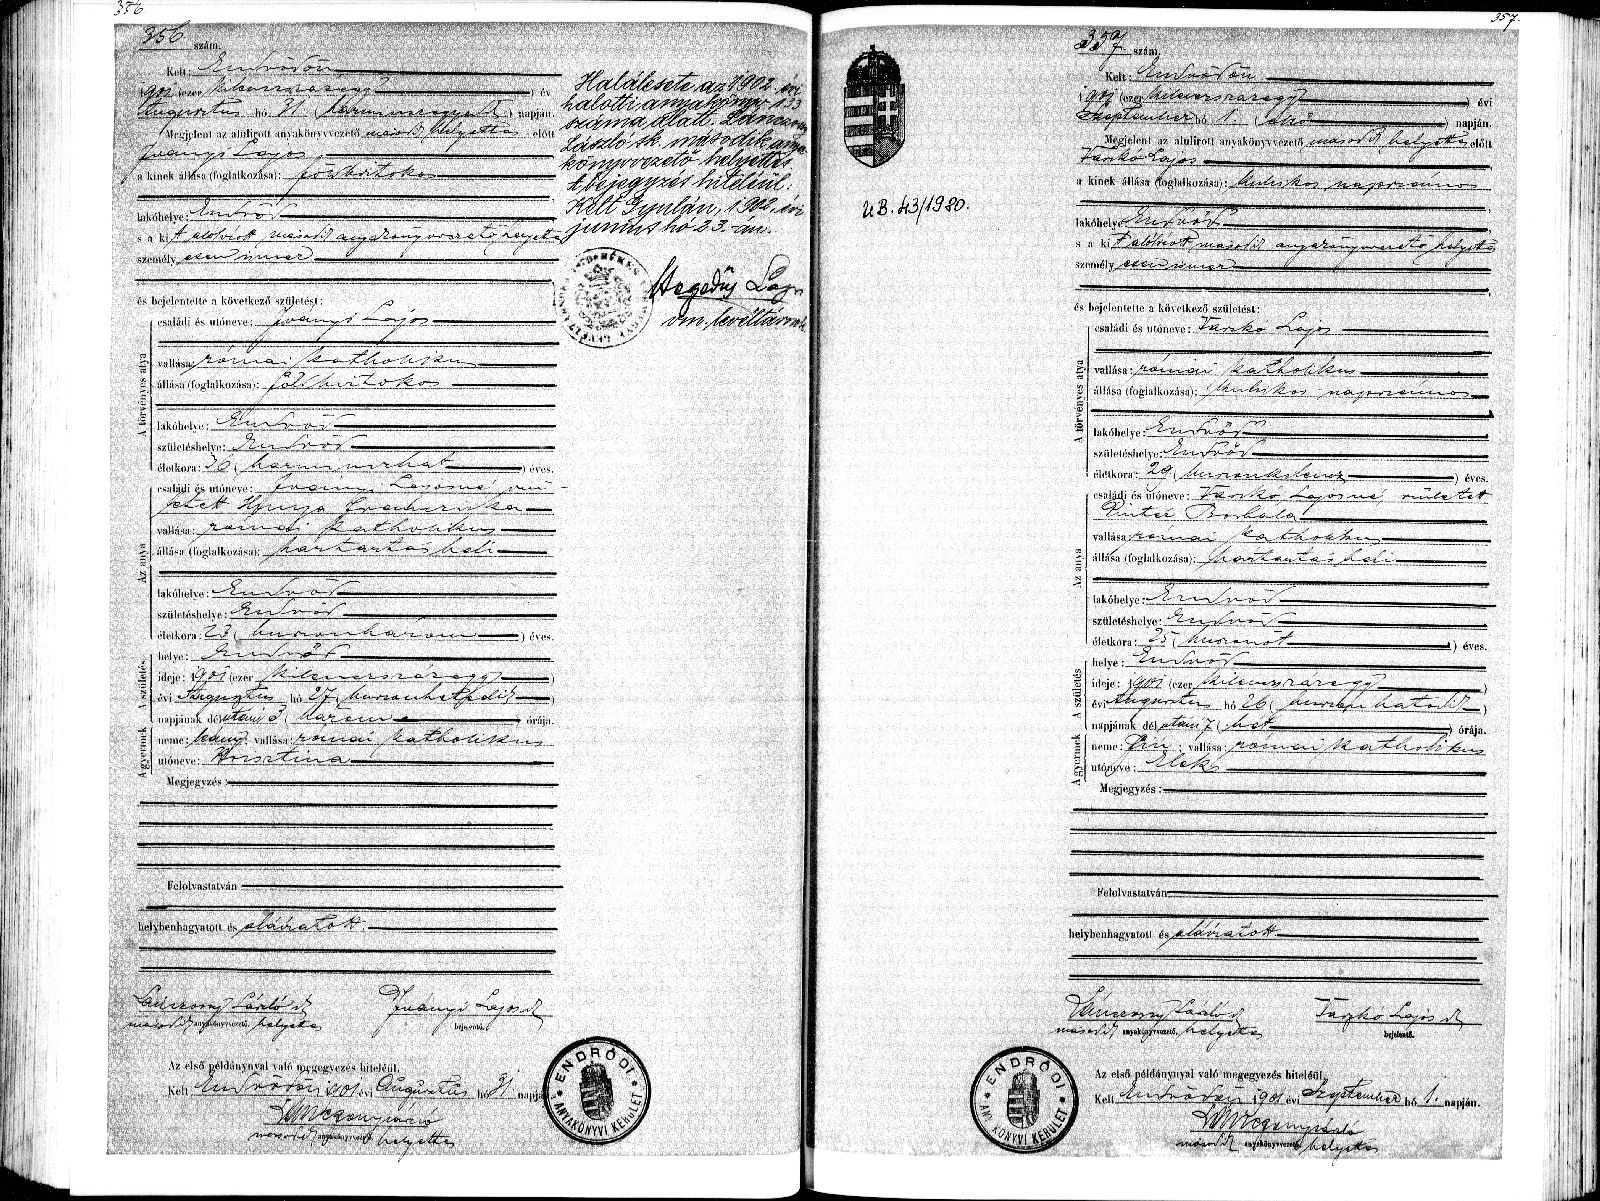 356
356 szám.
Kelt: Endrődön
1901 (ezer kilenczszázegy) év
Augusztus hó 31. (harminczegyedik) napján.
Megjelent az alulirott anyakönyvvezető másod helyettes előtt
Iványi Lajos
a kinek állása (foglalkozása): földbirtokos
lakóhelye: Endrőd
s a kit alólirott másod anyakönyvvezető helyettes
személyesen ismer
és bejelentette a következő születést:
A törvényes atya
családi és utóneve: Iványi Lajos
vallása: római katholikus
állása (foglalkozása): földbirtokos
lakóhelye: Endrőd
születéshelye: Endrőd
életkora: 36 (harminczhat) éves.
Az anya
családi és utóneve: Iványi Lajosné szü-
letett Hunya
vallása: római katholikus
állása (foglalkozása): háztartásbeli
lakóhelye: Endrőd
születéshelye: Endrőd
életkora: 23 (huszonhárom) éves.
A születés
helye: Endrőd
ideje: 1901 (ezer kilenczszázegy)
évi Augusztus hó 27 (huszonhetedik)
napjának délutáni 3 (három) órája.
A gyermek
neme: leány; vallása: római katholikus
utóneve: Krisztina
Megjegyzés:
Felolvastatván
helybenhagyatott és aláiratott.
Lánczony László sk
másod anyakönyvvezető helyettes
Iványi Lajos sk
bejelentő.
Az első példánynyal való megegyezés hiteléül.
Kelt Endrődön 1901 évi Augusztus hó 31 napján
másod anyakönyvvezető helyettes
ENDRŐDI
ANYAKÖNYVI KERÜLET
Halálesete az 1902. évi
halotti anyakönyv 133
száma alatt. Lánczony
László sk. második anya
könyvvezető helyettes
A bejegyzés hiteléül:
Kelt Gyulán, 1902. évi
junius hó 23.-án.
Hegedűs Lajos
vm. levéltárnok
357.
357 szám.
Kelt: Endrődön
1901 (ezer kilenczszázegy) évi
Szeptember hó 1. (első) napján.
Megjelent az alulirott anyakönyvvezető másod helyettes előtt
Varkó Lajos
a kinek állása (foglalkozása): kubikos napszámos
lakóhelye Endrőd
s a kit alólirott másod anyakönyvvezető helyettes
személyesen ismer
és bejelentette a következő születést:
A törvényes atya
családi és utóneve: Varkó Lajos
vallása: római katholikus
állása (foglalkozása): kubikos napszámos
lakóhelye: Endrőd
születéshelye: Endrőd
életkora: 29 (huszonkilencz) éves.
Az anya
családi és utóneve: Varkó Lajosné, született
Pintér Borbála
vallása: római katholikus
állása (foglalkozása): háztartásbeli
lakóhelye: Endrőd
születéshelye: Endrőd
életkora: 25 (huszonöt) éves.
A születés
helye: Endrőd
ideje: 1901 (ezer kilenczszázegy)
évi Augusztus hó 26 (huszonhatodik)
napjának délutáni 7 (hét) órája.
A gyermek
neme: fiu; vallása: római katholikus
utóneve: Elek
Megjegyzés:
Felolvastatván
helybenhagyatott és aláiratott
Lánczony László sk
másod anyakönyvvezető helyettes
Varkó Lajos sk
bejelentő.
Az első példánynyal való megegyezés hiteléül.
Kelt Endrődön 1901 évi Szeptember hó 1. napján.
másod anyakönyvvezető helyettes
ENDRŐDI
ANYAKÖNYVI KERÜLET
UB. 43/1980.